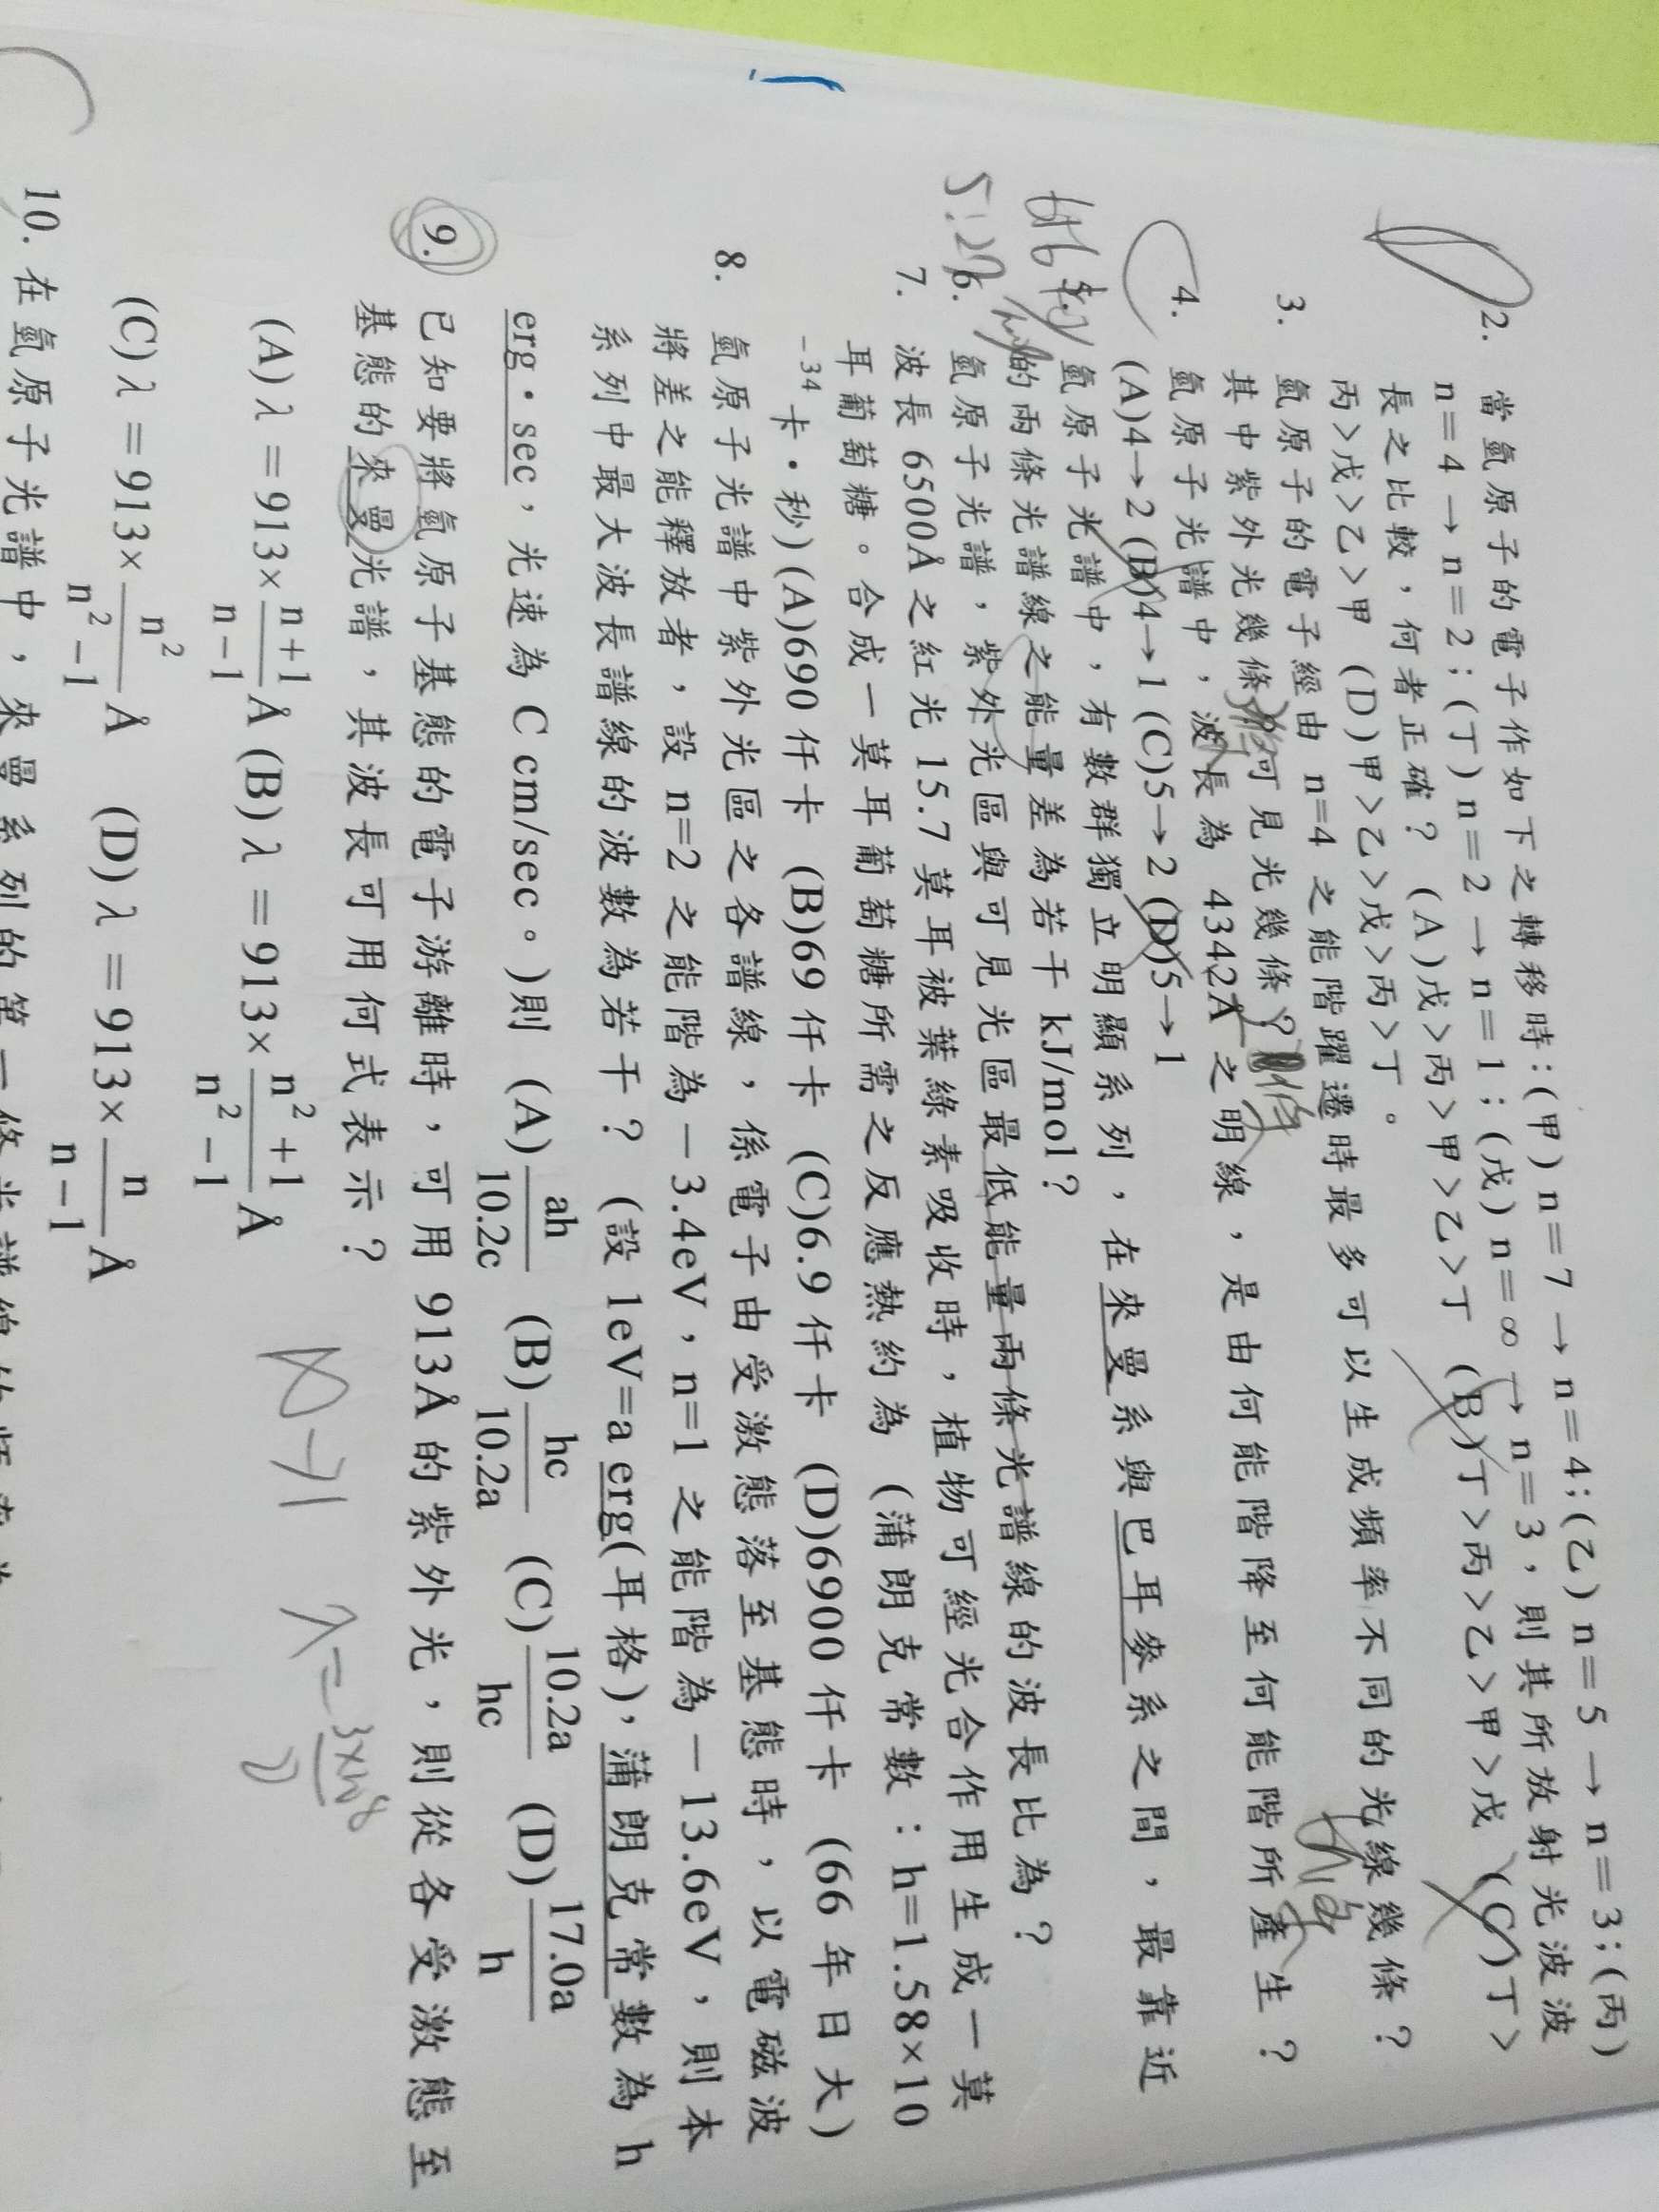 2. 當氫原子的電子作如下之轉移時:(甲) n=7 → n=4;(乙) n=5 → n=3;(丙)
n=4 → n=2;(丁) n=2 → n=1;(戊) n=∞ → n=3,則其所放射光波波
長之比較,何者正確? (A)戊>丙>甲>乙>丁 (B)丁>丙>乙>甲>戊 (C)丁>
丙>戊>乙>甲 (D)甲>乙>戊>丙>丁。
3. 氫原子的電子經由 n=4 之能階躍遷時最多可以生成頻率不同的光線幾條?
其中紫外光幾條?可見光幾條?
4. 氫原子光譜中,波長為 4342Å 之明線,是由何能階降至何能階所產生?
(A)4→2 (B)4→1 (C)5→2 (D)5→1
5. 氫原子光譜中,有數群獨立明顯系列,在來曼系與巴耳麥系之間,最靠近
的兩條光譜線之能量差為若干 kJ/mol?
6. 氫原子光譜,紫外光區與可見光區最低能量兩條光譜線的波長比為?
5:27
7. 波長 6500Å 之紅光 15.7 莫耳被葉綠素吸收時,植物可經光合作用生成一莫
耳葡萄糖。合成一莫耳葡萄糖所需之反應熱約為 (蒲朗克常數:h=1.58×10
⁻³⁴ 卡·秒) (A)690 仟卡 (B)69 仟卡 (C)6.9 仟卡 (D)6900 仟卡 (66 年日大)
8. 氫原子光譜中紫外光區之各譜線,係電子由受激態落至基態時,以電磁波
將差之能釋放者,設 n=2 之能階為−3.4eV,n=1 之能階為−13.6eV,則本
系列中最大波長譜線的波數為若干? (設 1eV=a erg(耳格),蒲朗克常數為 h
erg·sec,光速為 C cm/sec。)則 (A) ah/10.2c (B) hc/10.2a (C) 10.2a/hc (D) 17.0a/h
9. 已知要將氫原子基態的電子游離時,可用 913Å 的紫外光,則從各受激態至
基態的來曼光譜,其波長可用何式表示?
(A) λ=913× n+1/n−1 Å (B) λ=913× n²+1/n²−1 Å
(C) λ=913× n²/n²−1 Å (D) λ=913× n/n−1 Å
∞→1
10. 在氫原子光譜中,來曼系列的第一條光譜線的頻率為